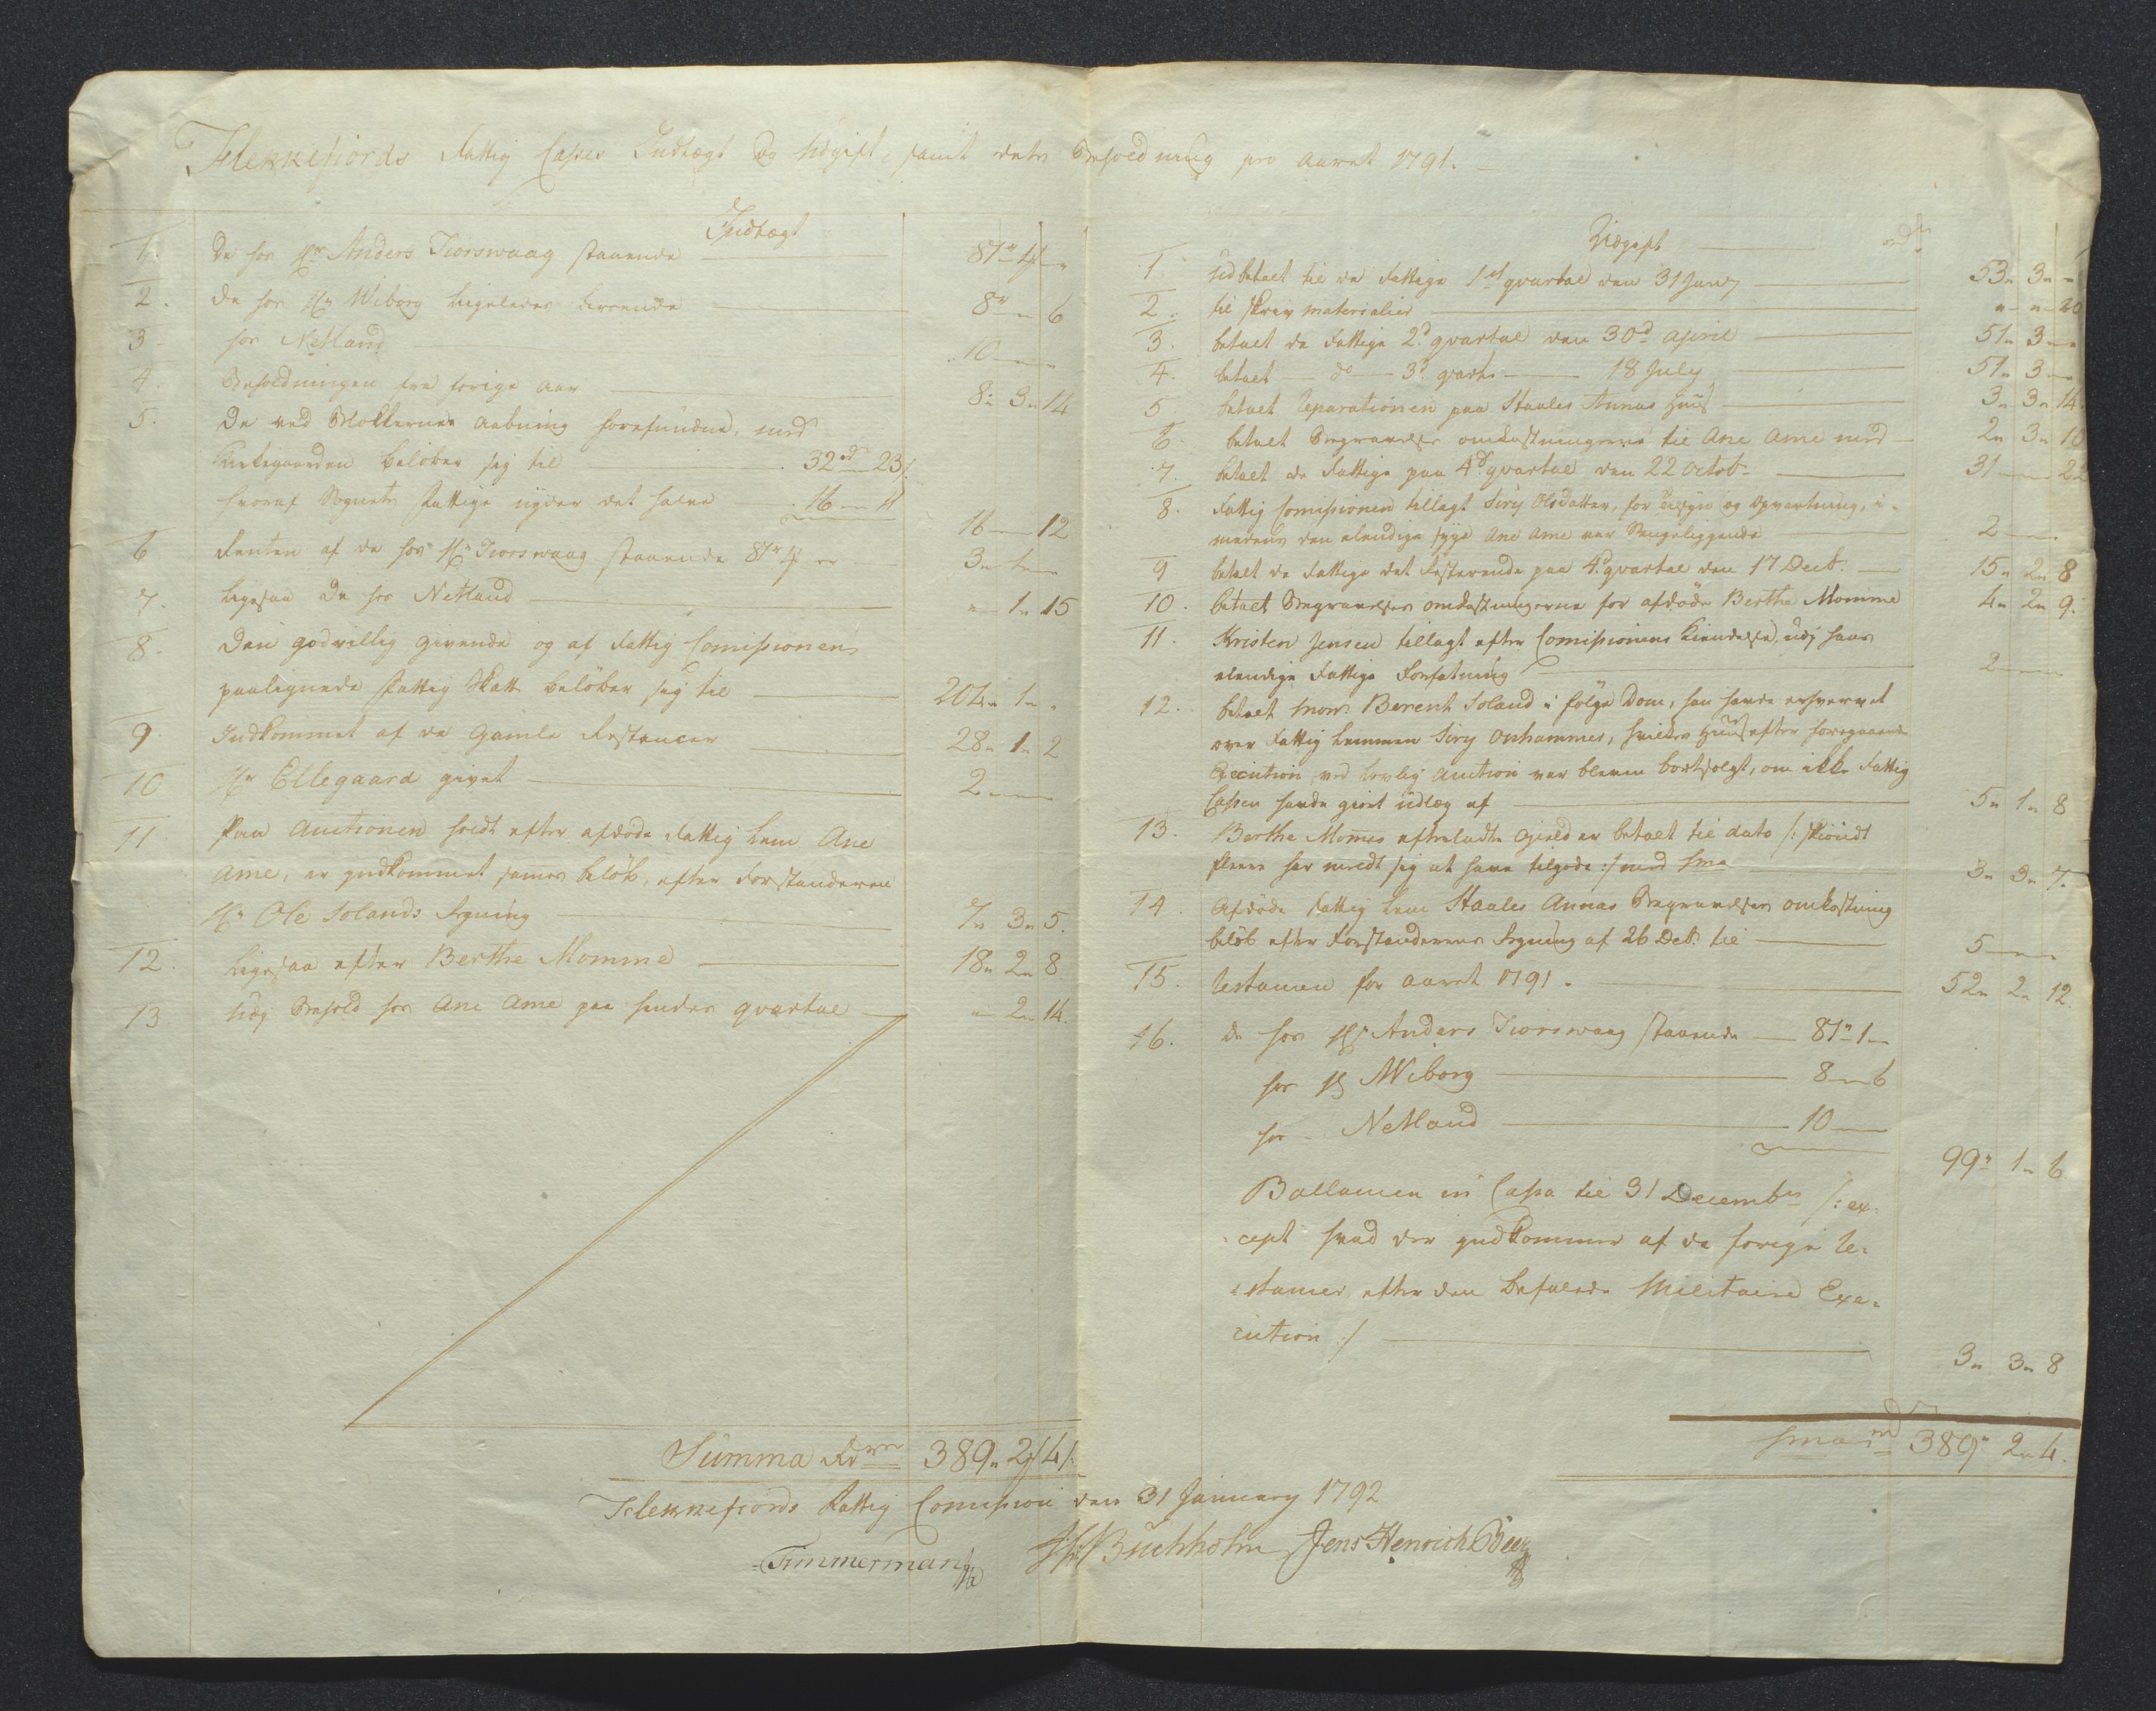 Flekkefiords Fattig Casses Indtægt og Udgift, samt dets Beholdning pro aaret 1791.
Indtægt
1. De hos Hr Anders Tiorswaag staaende 87 " 1 "
2. De hos Hr Wiborg ligeledes 8 " " 6
3 hos Netland 10 " "
4. Beholdningen fra forige aar 8 " 3 " 14
5. De ved Blokkernes aabning forefundne, med
Kirkegaarden beløber sig til 32 rd 23 s
hvoraf Sognets Fattige nyder det halve 16 " 11
16 " 12
6 Renten af de hos Hr Tiorswaag staaende 87 rd 1 er 3 " 1 "
7. ligesaa De hos Netland " 1 " 15
8. Den godvillig givende og af Fattig Comissionen
paalignede Fattig Skatt beløber sig til 204 " 1 "
9 Indkommet af de gamle Restancer 28 " 1 " 2
10 Hr Ellegaard givet 2 " "
11 Paa Auctionen holdt efter afdøde Fattig Lem Ane
Ame, er indkommet sammes beløb, efter Forstanderen
Hr Ole Solands Regning 7 " 3 " 5.
12. Ligesaa efter Berthe Momme 18 " 2 " 8
13 hos Ane Ame paa hendes qvartal " 2 " 14.
Summa Rdr 389 " 2 " 4
Udgift
rdr
1. Udbetalt til de Fattige 1st qvartal den 31 Janv 53 " 3 " "
2. til Skriv materialier " " " 20
3. betalt de Fattige 2d qvartal den 30d April 51 " 3 "
4. betalt do 3d qvart. 18 July 51 " 3 "
5. betalt Reparationen paa Staales Annas Huus 3 " 3 " 14
6. betalt Begravelses omkostningerne til Ane Ame med 2 " 3 " 10
7. betalt de Fattige paa 4d qvartal den 22 Octob. 31 " 22
8. Fattig Comissionen tillagt Siry Olsdatter, for tilsyn og Opvartning, i-
medens den elendige syge Ane Ame var Sengeliggende 2 " "
9 betalt de Fattige det Resterende paa 4d qvartal den 17 Decb. 15 " 2 " 8
10. betalt Begravelses omkostningerne for afdøde Berthe Momme 4 " 2 " 9.
11. Kristen Jensen tillagt efter Comissionens Kiendelse, udj hans
elendige Fattige Forfatning 2 " "
12. betalt Monr Berent Soland i følge Dom, han havde erhvervet
over Fattig Lemmen Siry Onhammer, hvilkes Huus efter foregaaende
Execution ved lovlig Auction var bleven bortsolgt, om ikke Fattig
Cassen havde giort udlæg af 5 " 1 " 8
13. Berthe Mommes efterladte Gield er betalt til dato /: skiøndt
fleere har meldt sig at have tilgode :/ med Sma 3 " 3 " 7.
14. Afdøde Fattig Lem Staales Annas Begravelses omkostning
beløb efter Forstanderens Regning af 26 Decb. til 5 " "
15. Restancen for aaret 1791. 52 " 2 " 12.
16. de hos Hr Anders Tiorswaag staaende 87 " 1 "
hos Hr Wiborg 8 " 6
hos Netland 10 "
99 " 1 " 6
Ballancen in Cassa til 31 Decembr /: ex-
cept hvad der indkommer af de forige Re-
stancer efter den befalede Militaire Exe-
cution :/ 3 " 3 " 8
Sma rd 389 " 2 " 4.
Flekkefiords Fattig Comission den 31 January 1792
Timmerman Buchholm Jens Henrich Beer